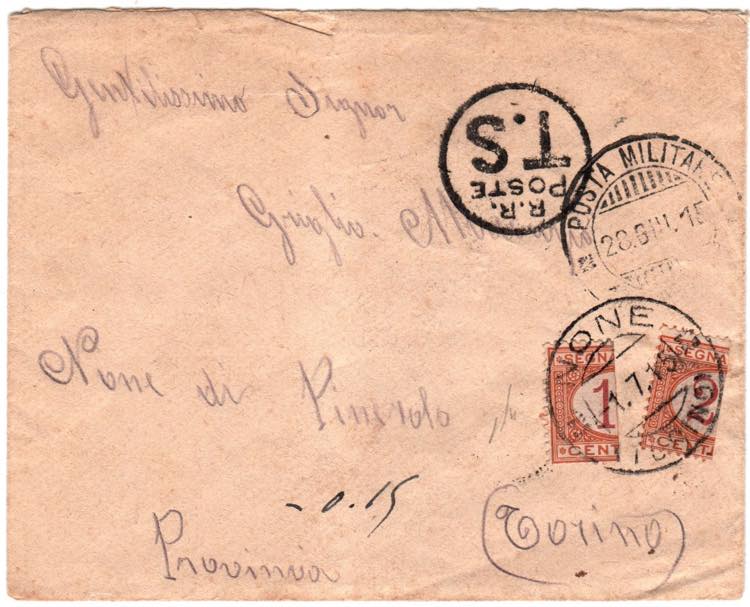 Gentilissimo Signor
Griglio
None di Pinerolo
- 0.15
Provincia
(Torino)
R.R.
POSTE
T.S
POSTA MILITARE
28.GIU.15
NONE
1.7.15
SEGNA
1
CENT
SEGNA
2
CENT